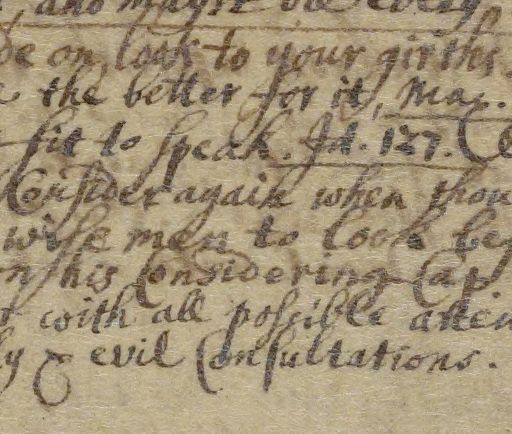 and mayst be every
de on, look to your girths
the better for it, Max.
fit to speak. Id. 127. (
Consider again when thou
wise men to look bef
on his Considering Cap
with all possible atten
ly & evil Consultations.